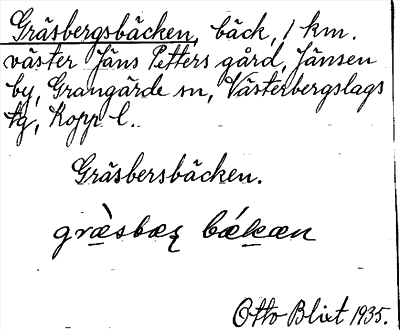 Gräsbergsbäcken, bäck, 1 km.
väster Jäns Petters gård, Jänsen
by, Grangärde sn, Västerbergslags
tg, Kopp. l.
Gräsbersbäcken.
græ̀sbæʂ bǽkæn
Otto Blixt 1935.